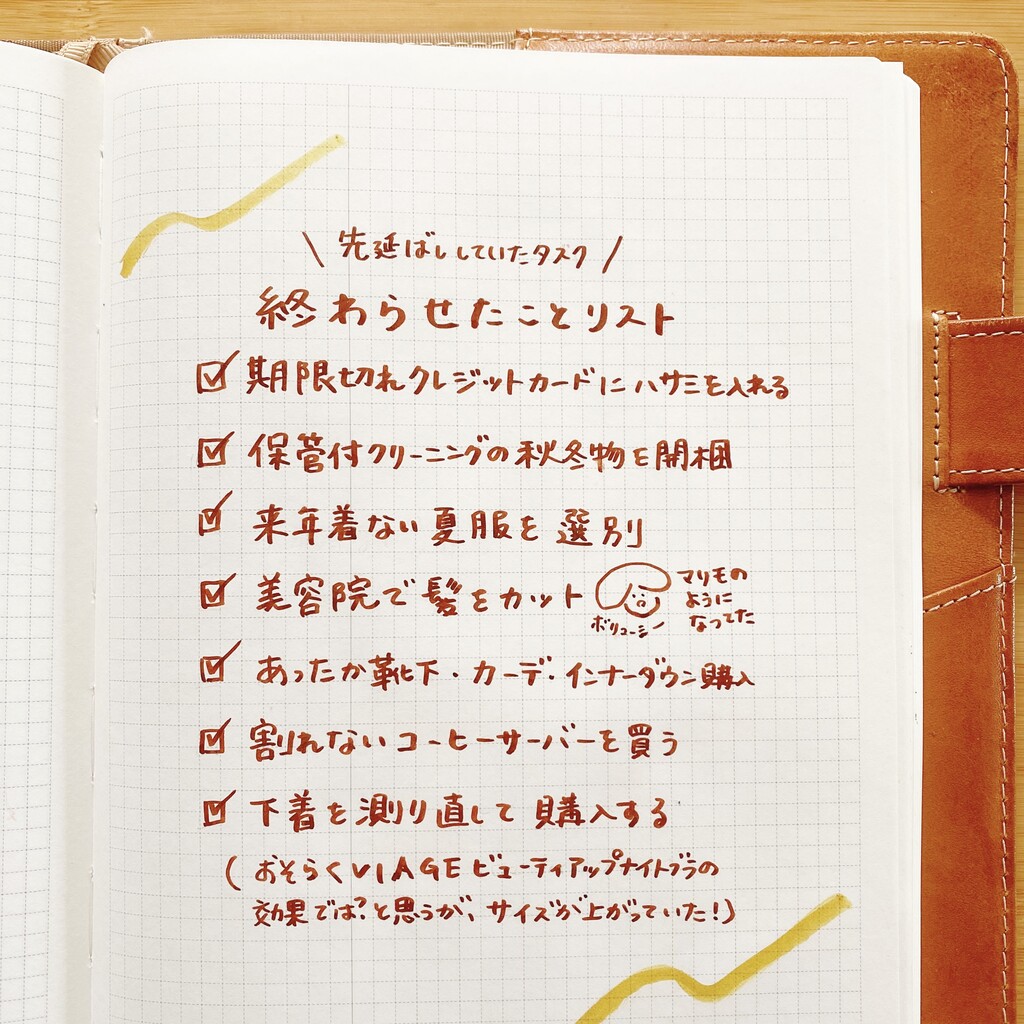 \ 先延ばししていたタスク /
終わらせたことリスト
☑ 期限切れクレジットカードにハサミを入れる
☑ 保管付クリーニングの秋冬物を開梱
☑ 来年着ない夏服を選別
☑ 美容院で髪をカット
マリモの
ように
なってた
ボリューミー
☑ あったか靴下・カーデ・インナーダウン購入
☑ 割れないコーヒーサーバーを買う
☑ 下着を測り直して購入する
(おそらくVIAGEビューティアップナイトブラの
効果では?と思うが、サイズが上がっていた!)